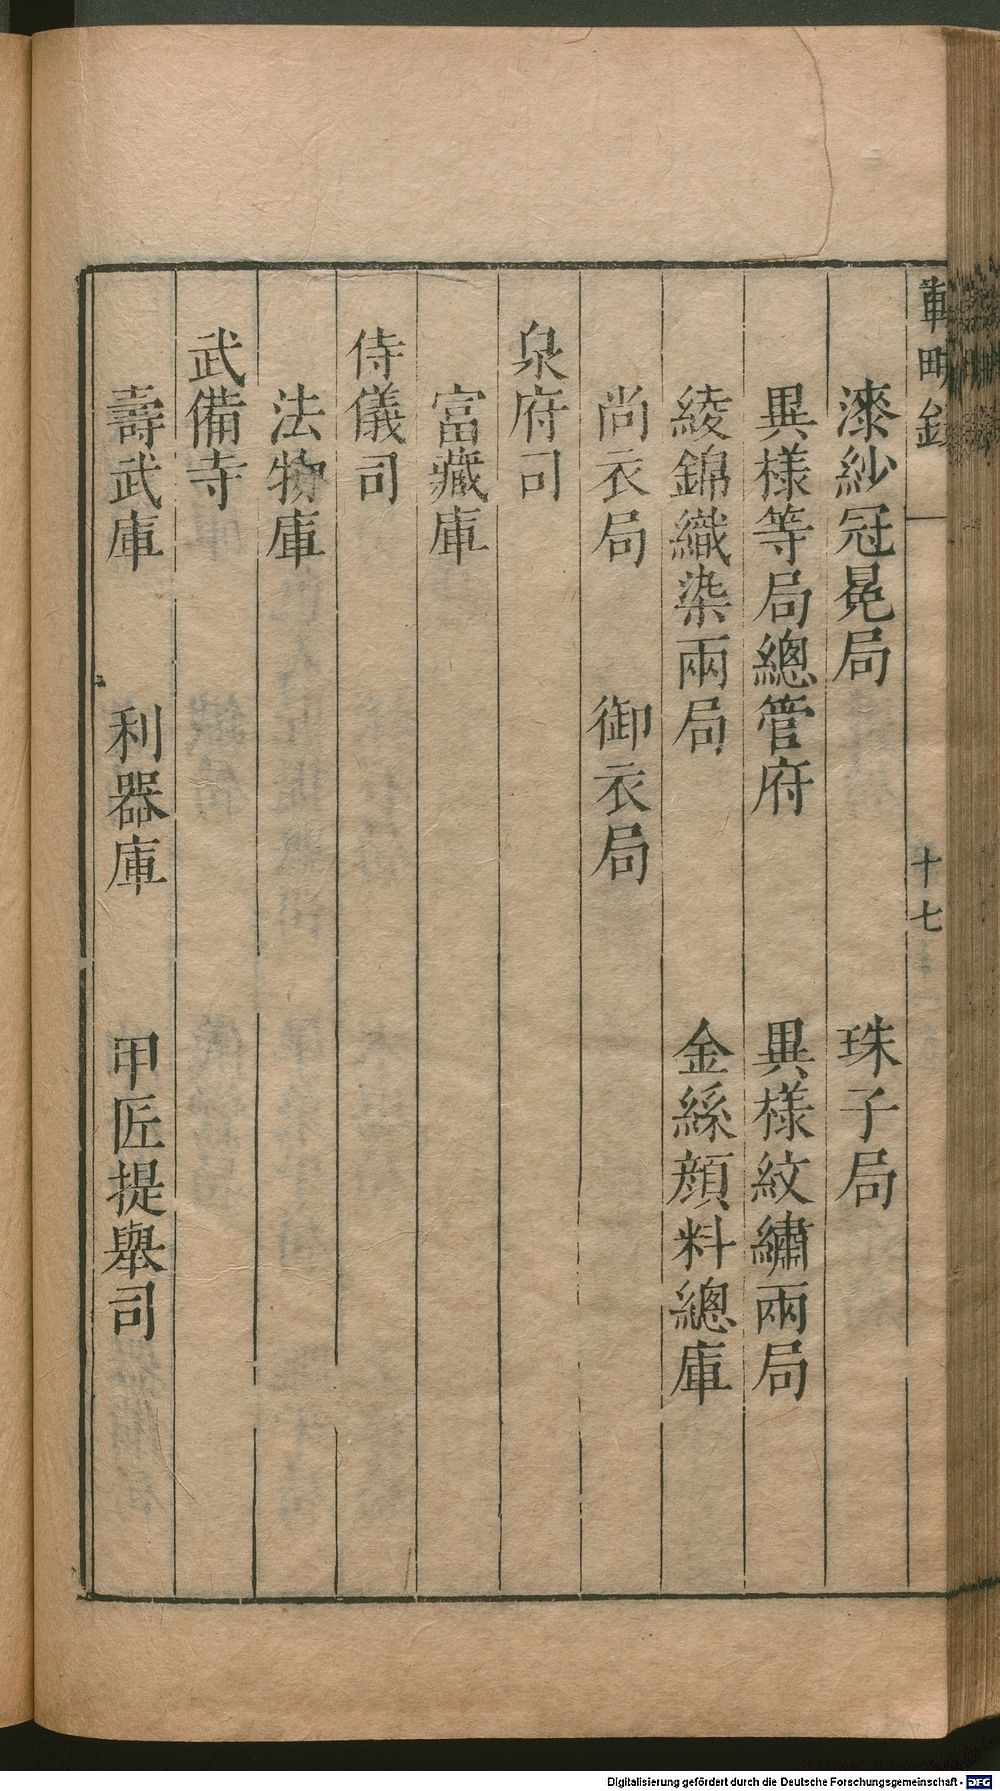 漆紗冠冕局　珠子局
異樣等局總管府　異樣紋繡兩局
綾錦織染兩局　金絲顔料總庫
尚衣局　御衣局
泉府司
富藏庫
侍儀司
法物庫
武備寺
壽武庫　利器庫　甲匠提舉司
十七
Digitalisierung gefördert durch die Deutsche Forschungsgemeinschaft - DFG